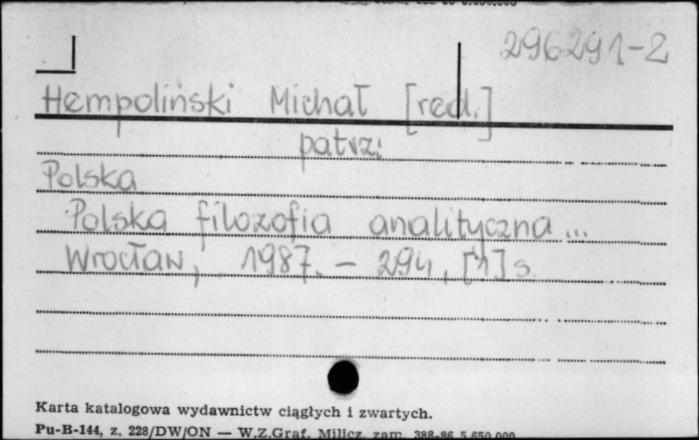 296291-2
Hempoliński Michał [red.]
patrz:
Polska
Polska filozofia analityczna...
Wrocław, 1987. - 294, [1] s.
Karta katalogowa wydawnictw ciągłych i zwartych.
Pu-B-144, z. 228/DW/ON — W.Z.Graf. Milicz, zam. 388-86 5.650.000